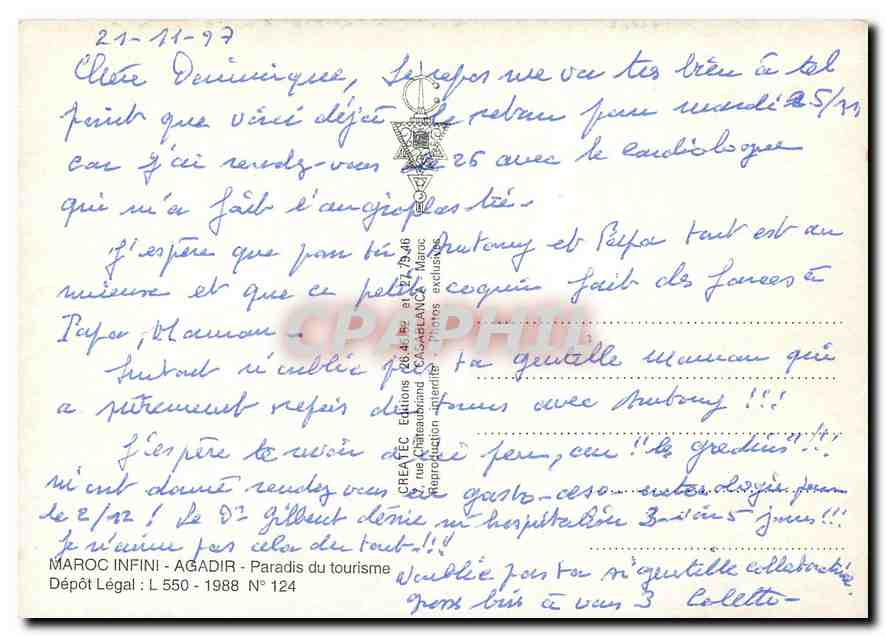 21-11-97
Chère Dominique, Le repos me va très bien à tel
point que voici déjà le retour pour mardi 25/11
car j'ai rendez-vous le 26 avec le cardiologue
qui m'a fait l'angioplastie.
J'espère que pour toi, Antony et Papa tout est au
mieux et que ce petit coquin fait des farces à
Papa, Maman.
Surtout n'oublie pas ta gentille maman qui
a sûrement repris du tonus avec Antony !!!
J'espère te revoir d'ici peu, car "les gredins"!!!
m'ont donné rendez vous en gastro-oeso-entérologie pour
le 2/12 ! Le Dr Gilbert désire m'hospitaliser 3 à 5 jours !!!
Je n'aime pas cela du tout !!!
N'oublie pas ta si gentille collaboratrice.
gros bis à vous 3 Colette
CREATEC Editions 26.46.62 et 27.79.46
rue Châteaubriand CASABLANCA - Maroc
Reproduction interdite - Photos exclusives
CPAPHIL
MAROC INFINI - AGADIR - Paradis du tourisme
Dépôt Légal : L 550 - 1988 N° 124